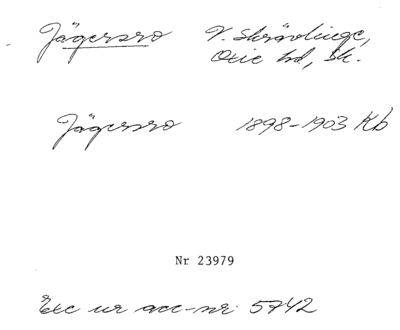 Jägersro V. Skrävlinge,
Oxie hd, Sk.
Jägersro 1898-1903 Kb
Nr 23979
Exc ur acc-nr 5742